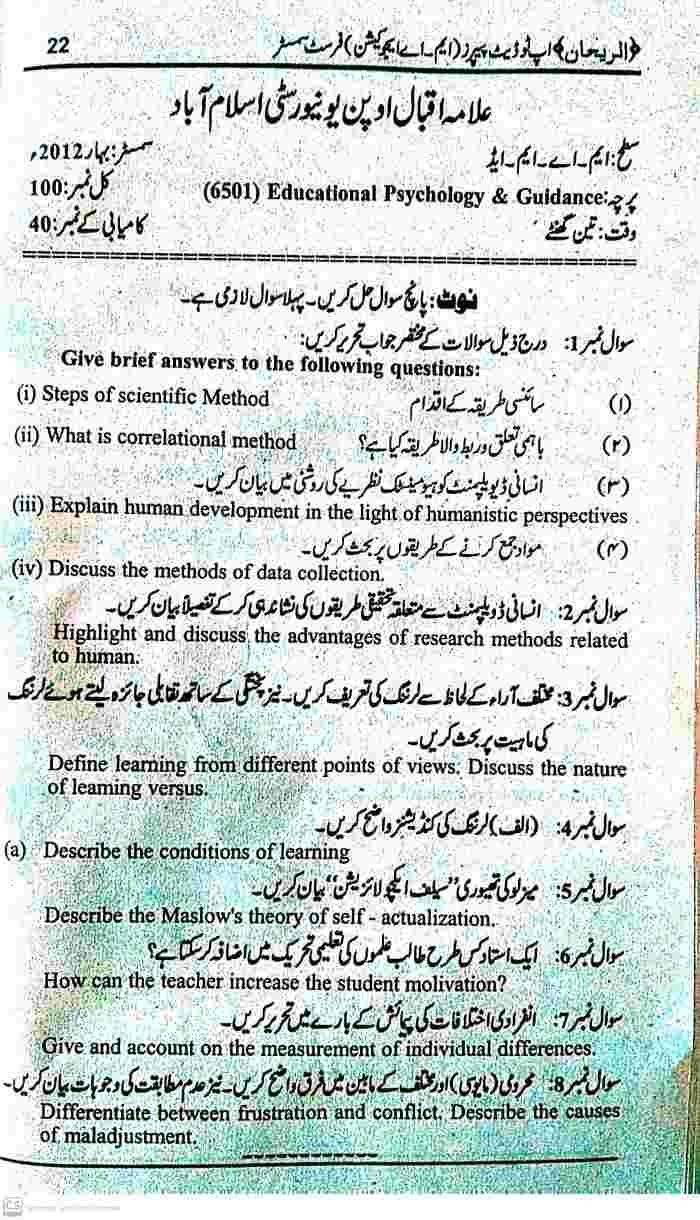 22 ﴿الریحان﴾ اپ ٹو ڈیٹ پیپرز (ایم۔اے ایجوکیشن) فرسٹ سمسٹر
علامہ اقبال اوپن یونیورسٹی اسلام آباد
سطح: ایم۔اے۔ایم۔ایڈ سمسٹر: بہار 2012ء
پرچہ: (6501) Educational Psychology & Guidance کل نمبر: 100
وقت: تین گھنٹے کامیابی کے نمبر: 40
نوٹ: پانچ سوال حل کریں۔ پہلا سوال لازمی ہے۔
سوال نمبر 1: درج ذیل سوالات کے مختصر جواب تحریر کریں:
Give brief answers to the following questions:
(i) Steps of scientific Method سائنسی طریقہ کے اقدام (۱)
(ii) What is correlational method باہمی تعلق و ربط والا طریقہ کیا ہے؟ (۲)
(۳) انسانی ڈویلپمنٹ کو ہیومینسٹک نظریے کی روشنی میں بیان کریں۔
(iii) Explain human development in the light of humanistic perspectives
(۴) مواد جمع کرنے کے طریقوں پر بحث کریں۔
(iv) Discuss the methods of data collection.
سوال نمبر 2: انسانی ڈویلپمنٹ سے متعلقہ تحقیقی طریقوں کی نشاندہی کر کے تفصیلاً بیان کریں۔
Highlight and discuss the advantages of research methods related
to human.
سوال نمبر 3: مختلف آراء کے لحاظ سے لرننگ کی تعریف کریں۔ نیز پختگی کے ساتھ تقابلی جائزہ لیتے ہوئے لرننگ
کی ماہیت پر بحث کریں۔
Define learning from different points of views. Discuss the nature
of learning versus.
سوال نمبر 4: (الف) لرننگ کی کنڈیشنز واضح کریں۔
(a) Describe the conditions of learning
سوال نمبر 5: میزلو کی تھیوری ”سیلف ایکچولائزیشن“ بیان کریں۔
Describe the Maslow's theory of self - actualization.
سوال نمبر 6: ایک استاد کس طرح طالب علموں کی تعلیمی تحریک میں اضافہ کر سکتا ہے؟
How can the teacher increase the student molivation?
سوال نمبر 7: انفرادی اختلافات کی پیمائش کے بارے میں تحریر کریں۔
Give and account on the measurement of individual differences.
سوال نمبر 8: محرومی (مایوسی) اور مختلف کے مابین فرق واضح کریں۔ نیز عدم مطابقت کی وجوہات بیان کریں۔
Differentiate between frustration and conflict. Describe the causes
of maladjustment.
CS